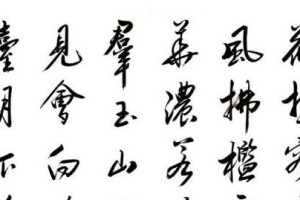 花想容
風拂檻
華濃若
羣玉山
見會向
臺月下